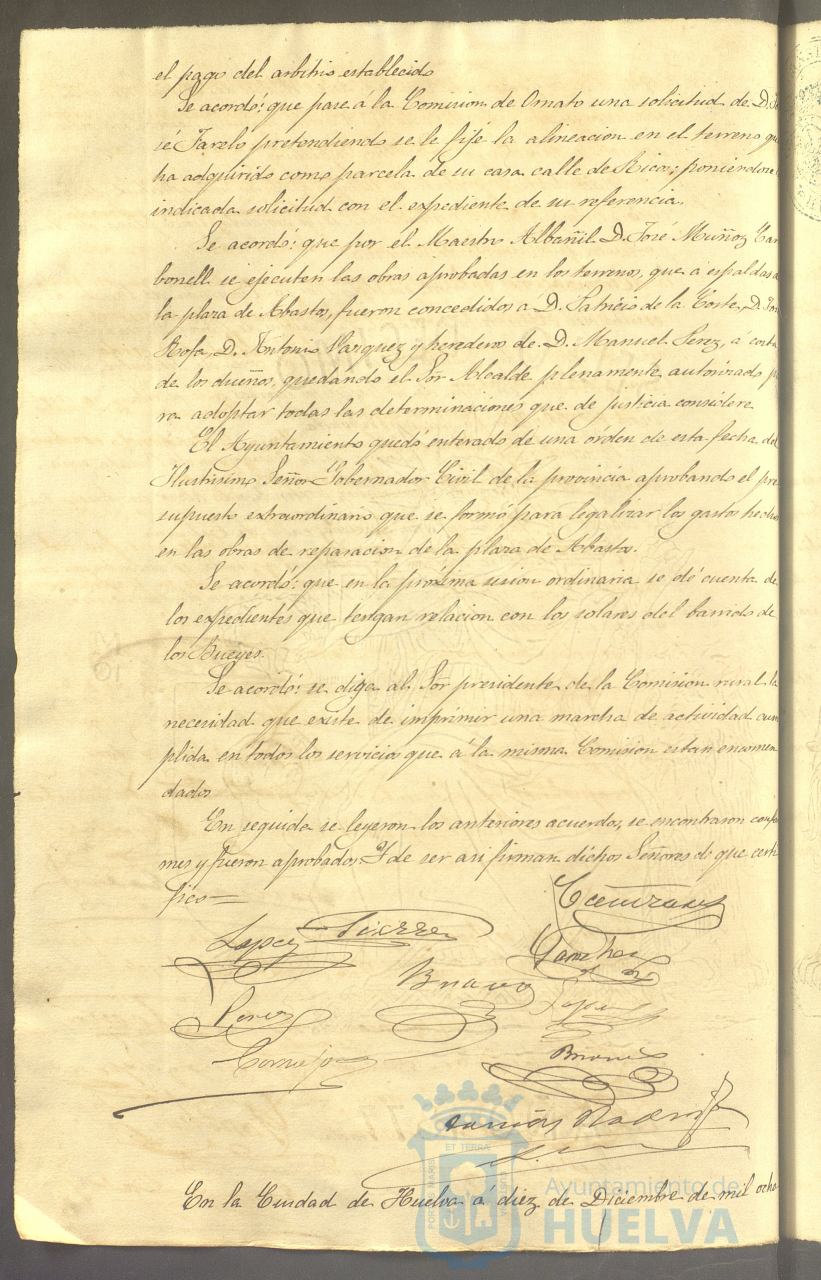 el pago del arbitrio establecido
Se acordó: que pase á la Comision de Ornato una solicitud de D. Jo
sé Farelo pretendiendo se le fije la alineacion en el terreno que
ha adquirido como parcela de su casa calle de Ricos; poniendose
indicada solicitud con el expediente de su referencia.
Se acordó: que por el Maestro Albañil D. José Muñoz Car
bonell se ejecuten las obras aprobadas en los terrenos, que á espaldas
la plaza de Abastos, fueron concedidos á D. Patricio de la Corte, D.
Rofa, D. Antonio Vazquez y herederos de D. Manuel Perez, á costa
de los dueños, quedando el Sor Alcalde plenamente autorizado pa
ra adoptar todas las determinaciones que de justicia considere
El Ayuntamiento quedó enterado de una órden de esta fecha del
Ilustrisimo Señor Gobernador Civil de la provincia aprobando el pre
supuesto extraordinario que se formó para legalizar los gastos hechos
en las obras de reparacion de la plaza de Abastos.
Se acordó: que en la próxima sesion ordinaria se dé cuenta de
los expedientes que tengan relacion con los solares del barrio de
los Bueyes.
Se acordó: se diga al Sor presidente de la Comision rural la
necesidad que existe de imprimir una marcha de actividad cum
plida en todos los servicios que á la misma Comision estan encomen
dados
En seguida se leyeron los anteriores acuerdos, se encontraron confor
mes y fueron aprobados. Y de ser asi firman dichos Señores de que certi
fico=
Lopez
Sanchez
Bravo
Perez
Lopez
Cornejo
En la Ciudad de Huelva á diez de Diciembre de mil ocho
ET TERRAE
Ayuntamiento de
HUELVA